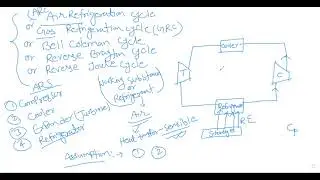 (ARC
Air Refrigeration cycle
or Gas Refrigeration cycle (GRC)
or Bell Coleman cycle
or Reverse Brayton cycle
or Reverse Joule cycle
ARS
① Compressor
② Cooler
③ Expander (Turbine)
④ Refrigerator
Working substance
or
Refrigerant
Air
Heat transfer - sensible
Assumption: → ① ②
Cooler
T
C
Refrigerator
RE
Storage
Cp